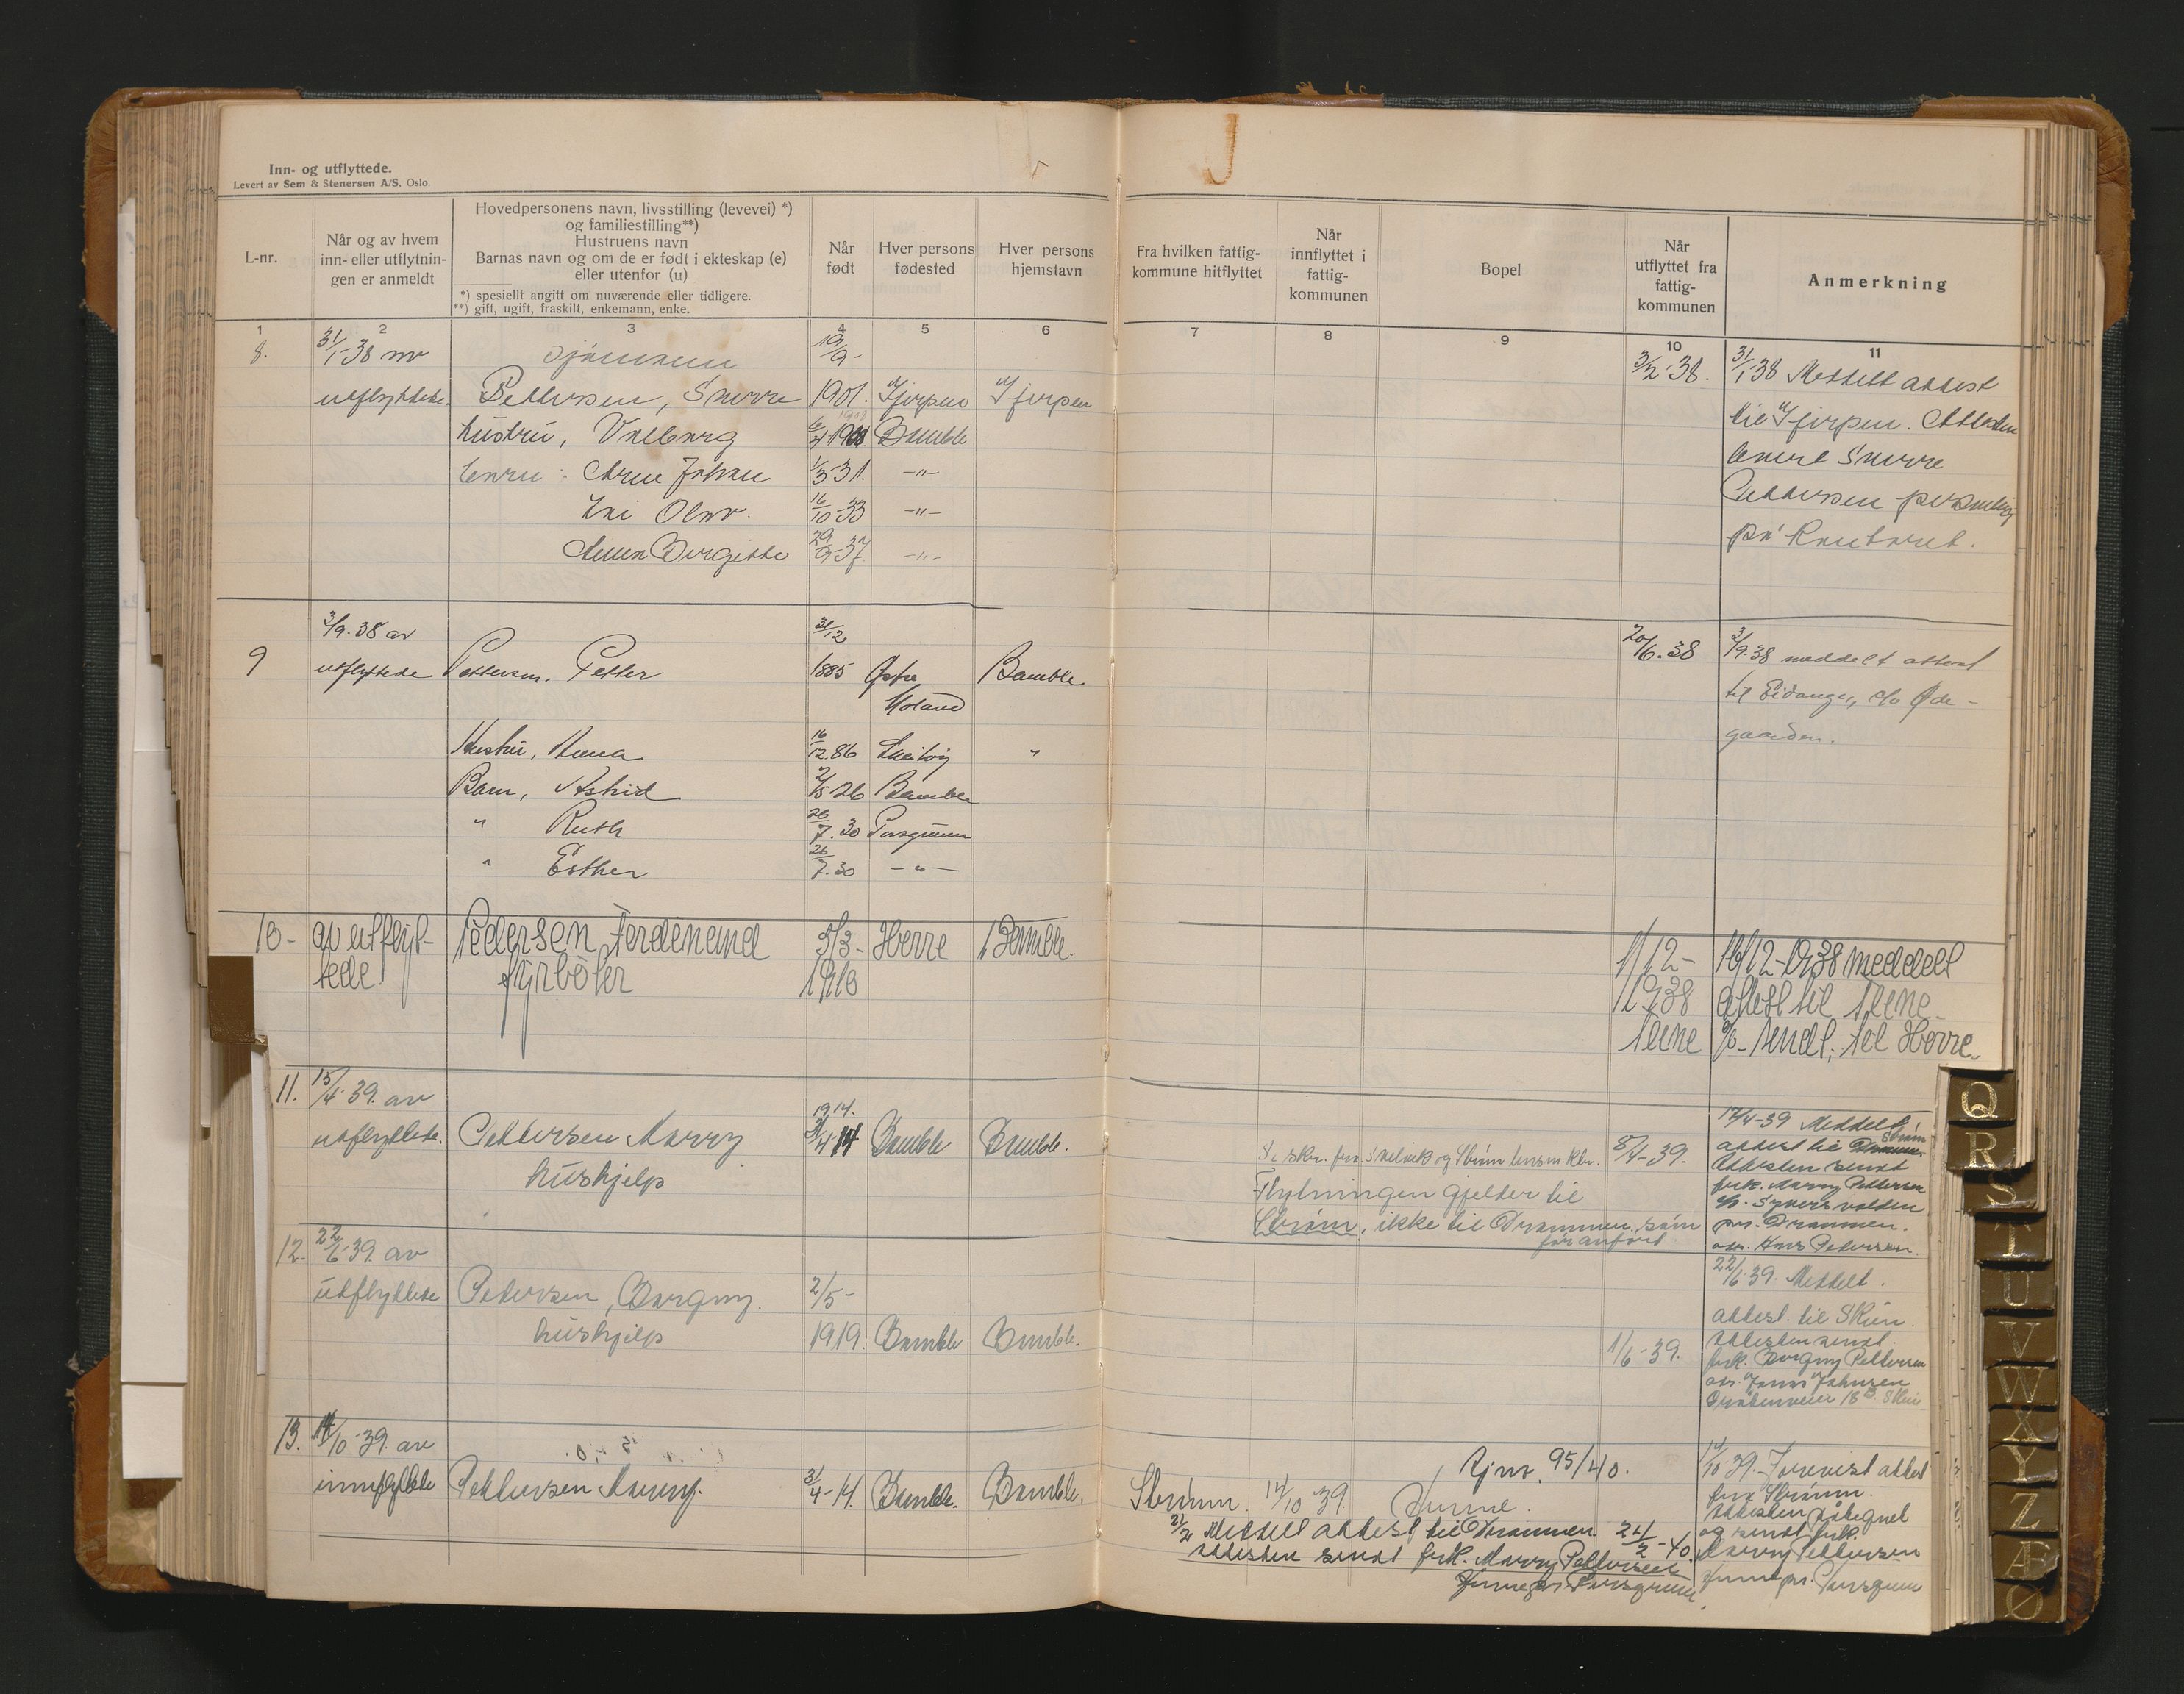 Inn- og utflyttede.
Levert av Sem & Stenersen A/S. Oslo.
L-nr.
Når og av hvem
inn- eller utflytnin-
gen er anmeldt
Hovedpersonens navn, livsstilling (levevei) *)
og familiestilling**)
Hustruens navn
Barnas navn og om de er født i ekteskap (e)
eller utenfor (u)
*) spesiellt angitt om nuværende eller tidligere.
**) gift, ugift, fraskilt, enkemann, enke.
Når
født
Hver persons
fødested
Hver persons
hjemstavn
Fra hvilken fattig-
kommune hitflyttet
Når
innflyttet i
fattig-
kommunen
Bopel
Når
utflyttet fra
fattig-
kommunen
Anmerkning
1 2 3 4 5 6 7 8 9 10 11
8. 31/1-38 av Sjømann 19/9- 3/2-38. 31/1-38 Meddelt attest
utflyttede. Pettersen, Snorre 1901. Gjerpen Gjerpen til Gjerpen. Attesten
hustru, Valborg 6/4 1908 Bamble levert Snorre
barn: Arne Johan 1/3-31. -"- Pettersen personlig
Olav. 16/10-33 -"- på kontoret.
Birgitte 29/9-37. -"-
9 3/9.38 av utflyttede Pettersen, Petter 31/12 1885 Østre Moland Bamble 20/6.38 3/9.38 meddelt attest
til Eidanger, c/o Øde-
gaarden.
Hustru, Anna 16/12.86 "
Barn, Astrid 2/5-26 Bamble
" Ruth 26/7.30 Porsgrunn
" Esther 26/7.30 -"-
10- av utflyt- Pedersen, Ferdenand 5/3- Herre Bamble. 1/12- 16/12-1938 meddelt
tede. fyrbøter 1910 1938 attest til Skene
Skene % sendt. til Herre
11. 15/4-39. av 1914. 17/4-39 Meddelt
utflyttede. Pettersen Marry 3/4-14 Bamble Bamble. 8/4-39. attest til Drammen Strøm
hushjelp Attesten sendt
Flytningen gjelder til frk. Marry Pettersen
Strøm, ikke til Drammen som
før anført
pr. Drammen.
adr. Hans Pedersen.
12. 22/6-39. av 22/6-39. Meddelt.
utflyttede Petersen, Borgny. 2/5- attest til Skien.
hushjelp 1919. Bamble Bamble. 1/6-39. Attesten sendt.
frk. Borgny Pettersen
adr. Johnsen
18 B. Skien
13. 14/10-39. av J.nr. 95/40. 14/10-39. Forevist attest
innflyttede Pettersen Marry. 3/4-14. Bamble. Bamble. Strømm. 14/10 39. fra Strømm.
Attesten påtegnet
21/2 Meddelt attest til Drammen. 21/2-40. og sendt frk.
Attesten sendt frk. Marry Pettersen Marry Pettersen
pr. Porsgrunn. pr. Porsgrunn
Q
R
S
T
U
V
W
X
Y
Z
Æ
Ø